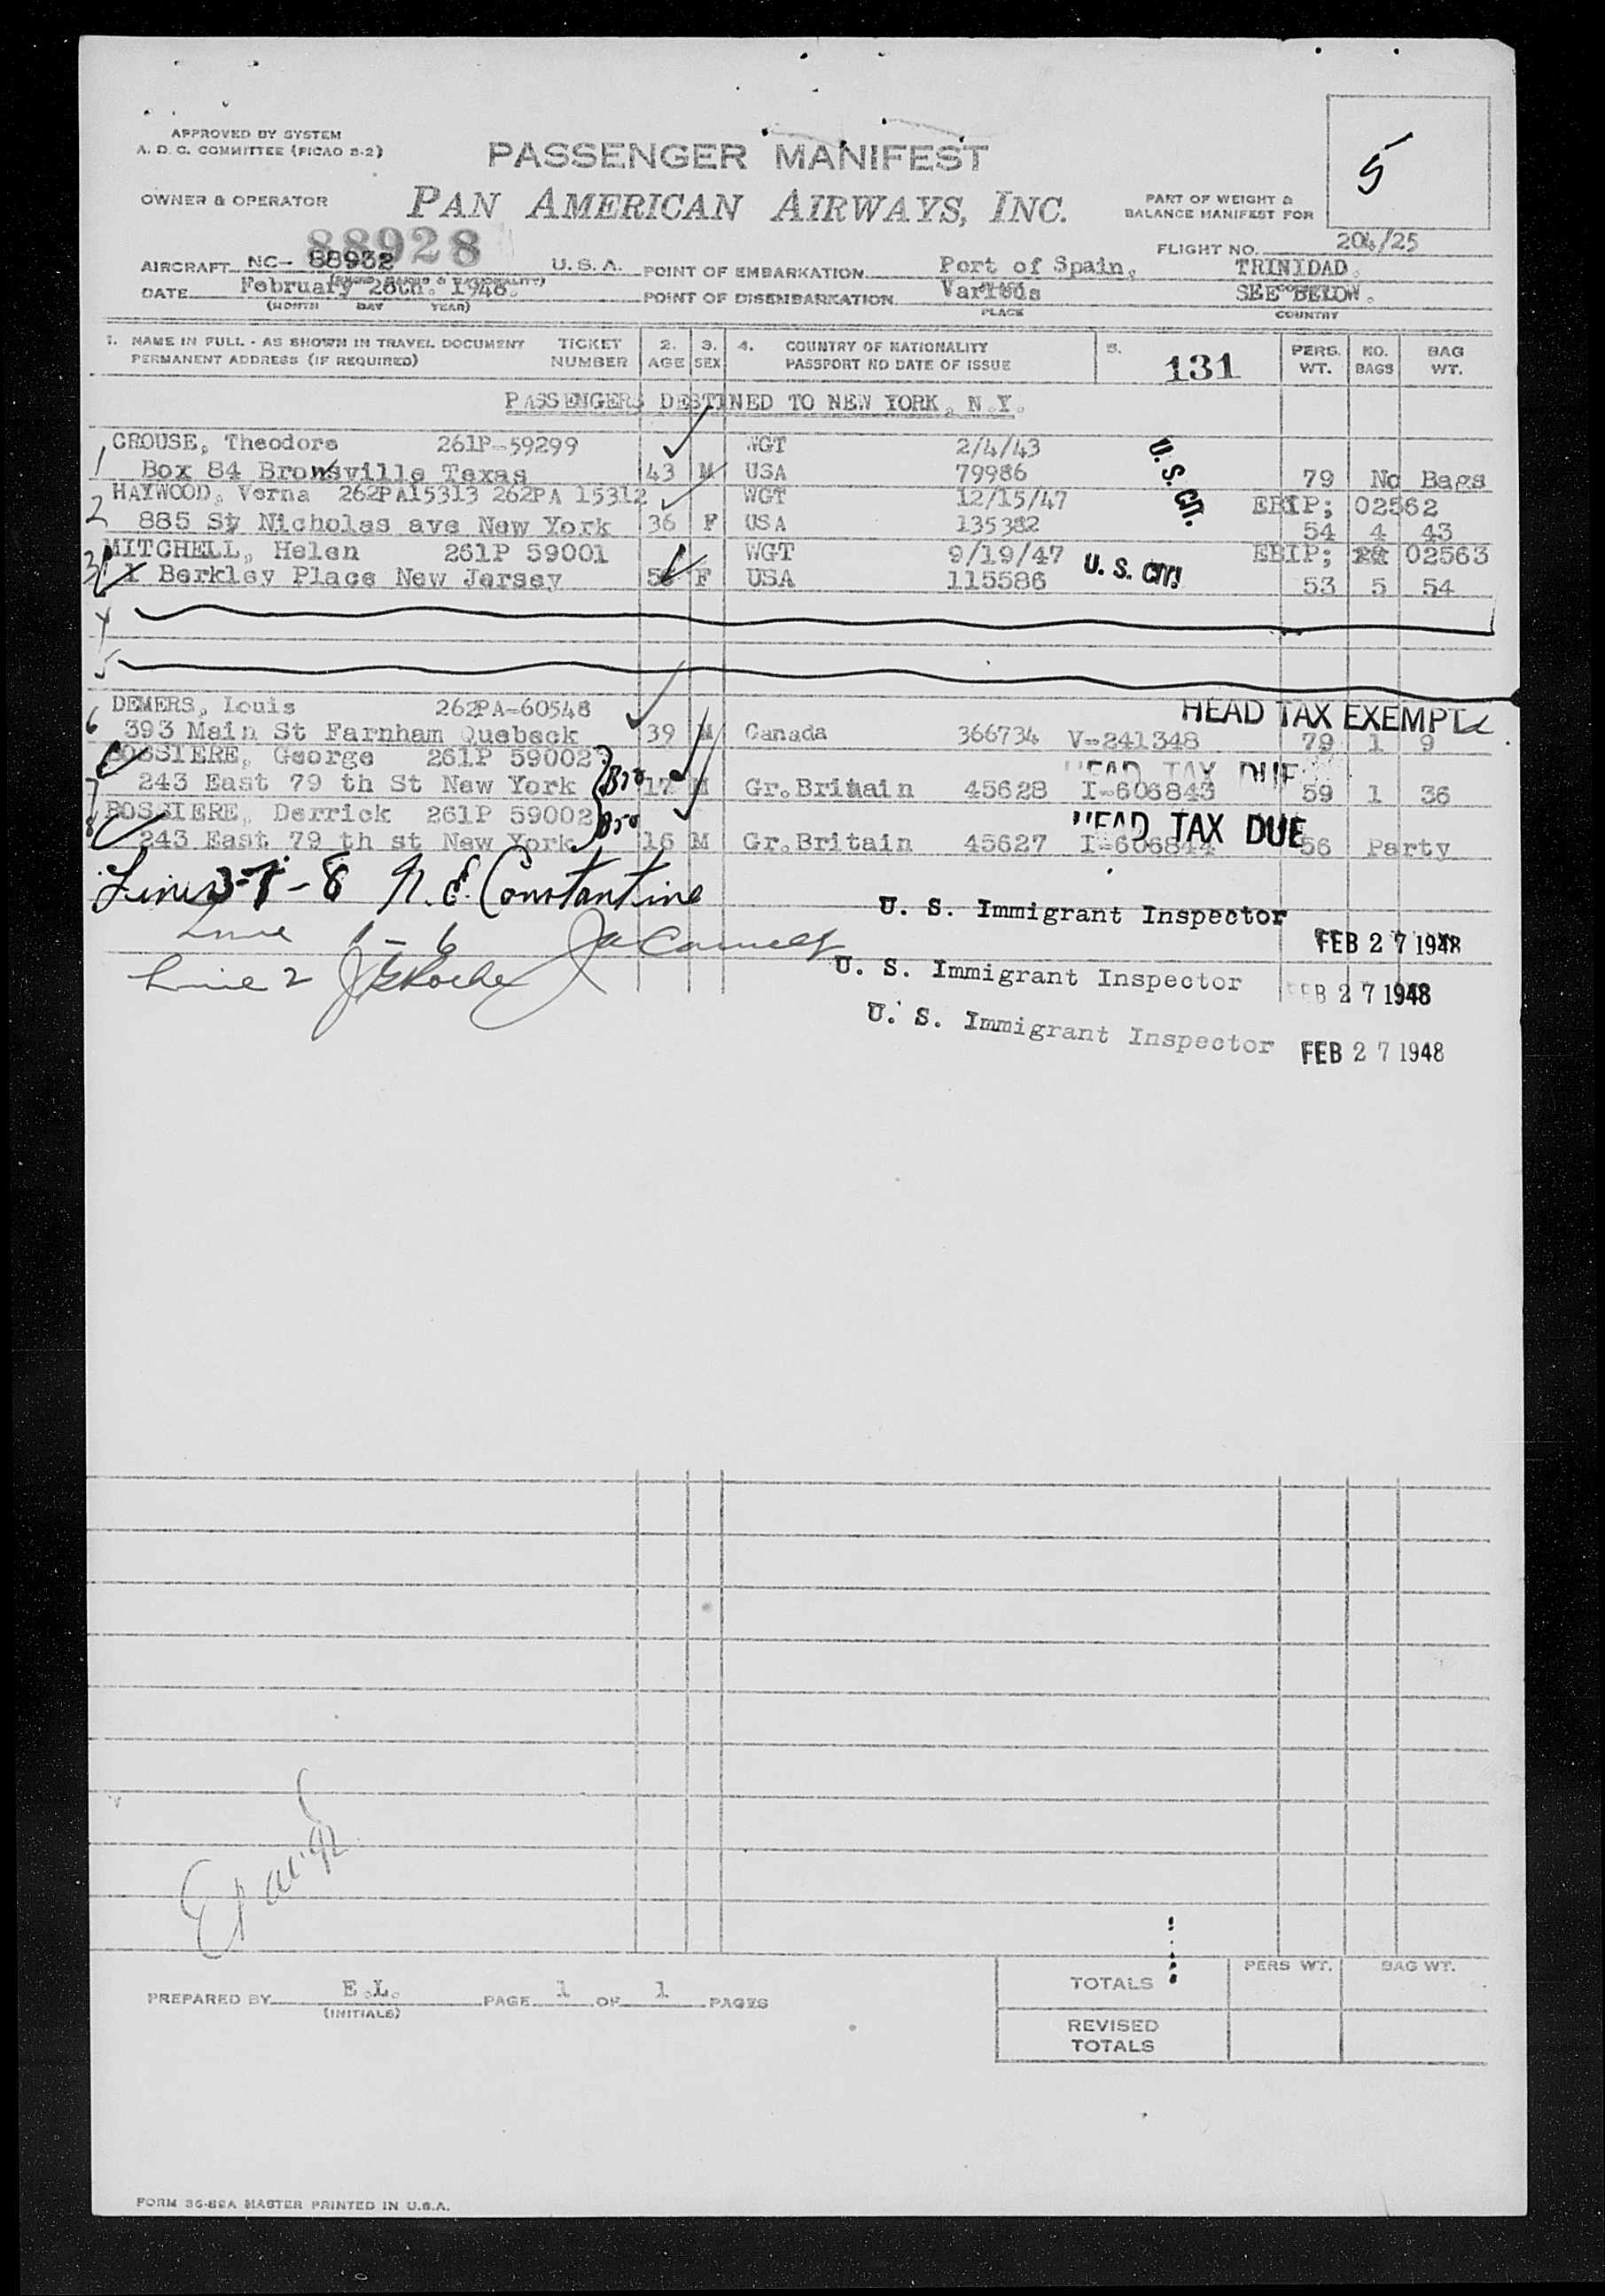 APPROVED BY SYSTEM
A. D. C. COMMITTEE (PICAO S-2)
PASSENGER MANIFEST
5
OWNER & OPERATOR
PAN AMERICAN AIRWAYS, INC.
PART OF WEIGHT &
BALANCE MANIFEST FOR
88928
FLIGHT NO. 204/25
AIRCRAFT NC- 88932 U. S. A. POINT OF EMBARKATION Port of Spain, TRINIDAD.
DATE February 1948. POINT OF DISEMBARKATION Various SEE BELOW.
(MONTH DAY YEAR) PLACE COUNTRY
1. NAME IN FULL - AS SHOWN IN TRAVEL DOCUMENT TICKET 2. 3. 4. COUNTRY OF NATIONALITY 5. PERS. NO. BAG
PERMANENT ADDRESS (IF REQUIRED) NUMBER AGE SEX PASSPORT NO DATE OF ISSUE 131 WT. BAGS WT.
PASSENGERS DESTINED TO NEW YORK, N.Y.
CROUSE, Theodore 261P-59299 WGT 2/4/43 U. S. CIT.
1 Box 84 Brownsville Texas 43 M USA 79986 79 No Bags
HAYWOOD, Verna 262PA15313 262PA 15312 WGT 12/15/47 EBIP; 02562
2 885 St Nicholas ave New York 36 F USA 135382 54 4 43
MITCHELL, Helen 261P 59001 WGT 9/19/47 U. S. CIT. EBIP; 02563
3 1 Berkley Place New Jersey F USA 115586 53 5 54
4
5
DEMERS, Louis 262PA-60548 HEAD TAX EXEMPT
6 393 Main St Farnham Quebeck 39 M Canada 366734 V-241348 79 1 9
BOSSIERE, George 261P 59002 HEAD TAX DUE
7 243 East 79 th St New York Bro 17 M Gr.Britain 45628 I-606843 59 1 36
BOSSIERE, Derrick 261P 59002 Bro HEAD TAX DUE
8 243 East 79 th st New York 16 M Gr.Britain 45627 I-606844 56 Party
Lines 3-7-8 N. E. Constantine U. S. Immigrant Inspector FEB 27 1948
Line 1-6 U. S. Immigrant Inspector FEB 27 1948
Line 2 U. S. Immigrant Inspector FEB 27 1948
PREPARED BY E.L. PAGE 1 OF 1 PAGES
(INITIALS)
TOTALS PERS WT. BAG WT.
REVISED
TOTALS
FORM 36-82A MASTER PRINTED IN U.S.A.